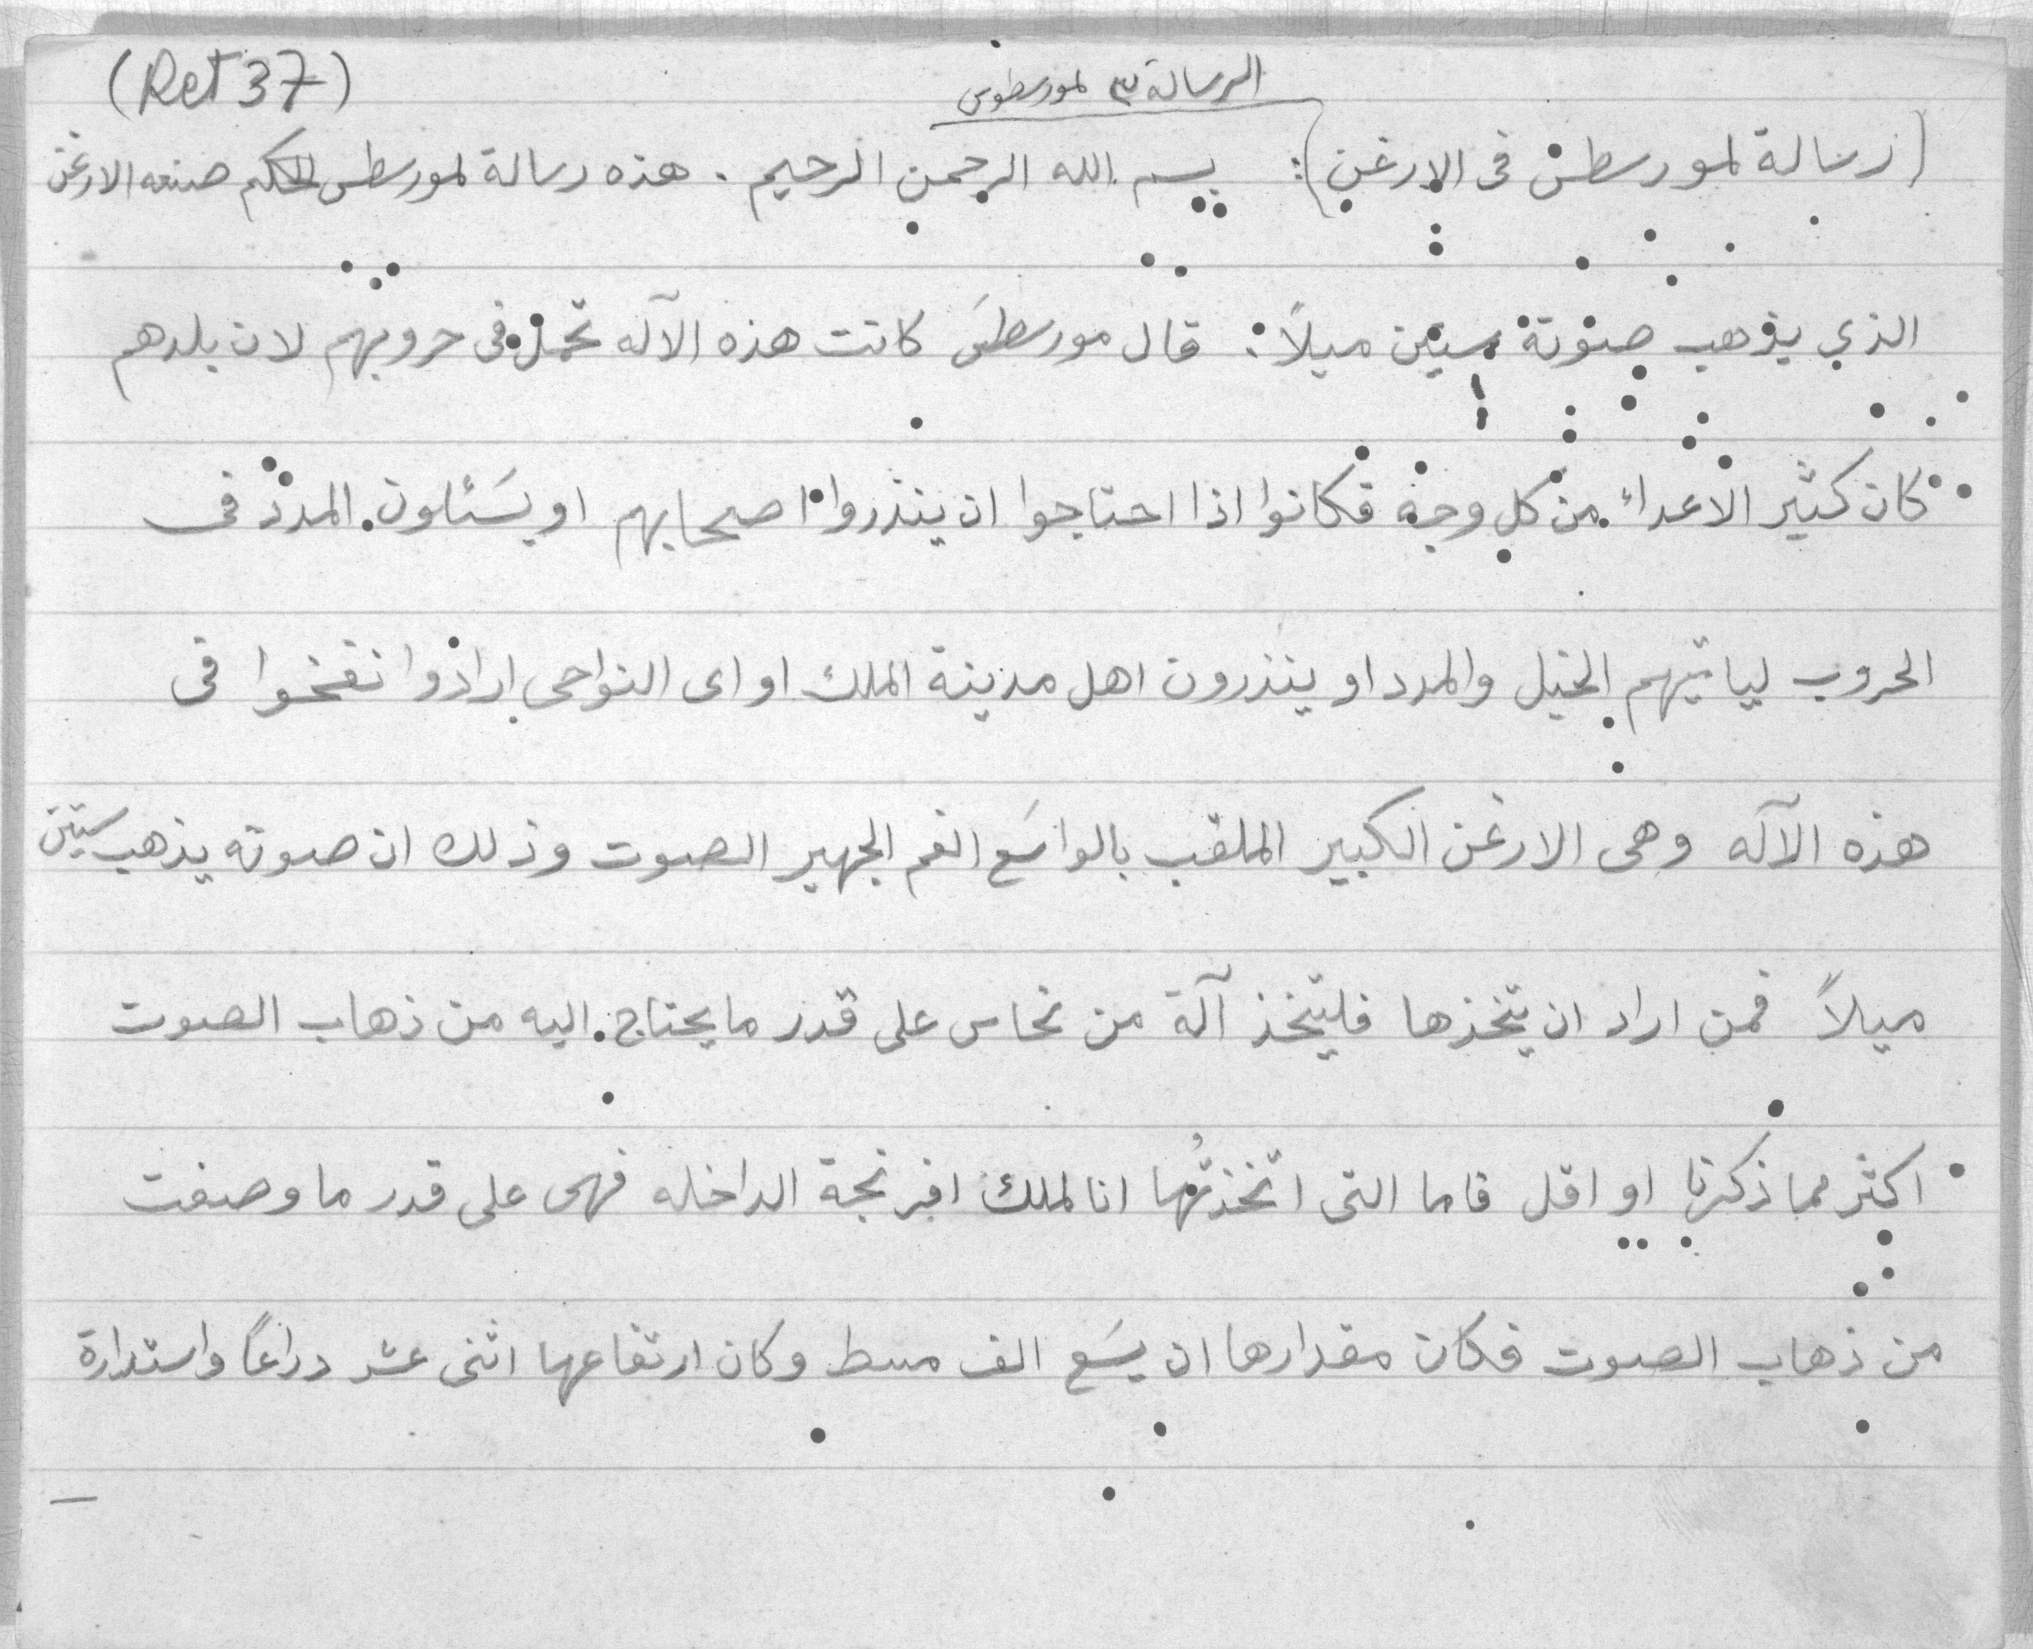 (Ret 37)
الرسالة ٣ لمورسطوس
(رسالة لمورسطس فى الارغن): بسم الله الرحمن الرحيم . هذه رسالة لمورسطس الحكم صنعه الارغن
الذي يذهب صوته ستين ميلاً : قال مورسطس كانت هذه الآله تحمل فى حروبهم لان بلدهم
كان كثير الاعداء من كل وجه فكانوا اذا احتاجوا ان ينذروا اصحابهم او يسَئلون المدد فى
الحروب لياتيهم الخيل والمدد او ينذرون اهل مدينة الملك او اى النواحى ارادوا نفخوا فى
هذه الآله وهى الارغن الكبير الملقب بالواسَع الفم الجهير الصوت وذلك ان صوته يذهب ستين
ميلاً فمن اراد ان يتخذها فليتخذ آلة من نحاس على قدر ما يحتاج اليه من ذهاب الصوت
اكثر مما ذكرنا او اقل فاما التى اتخذتُها انا لملك افرنجة الداخله فهى على قدر ما وصفت
من ذهاب الصوت فكان مقدارها ان يسَع الف مسط وكان ارتفاعها اثنى عشر دراعاً واستدارة